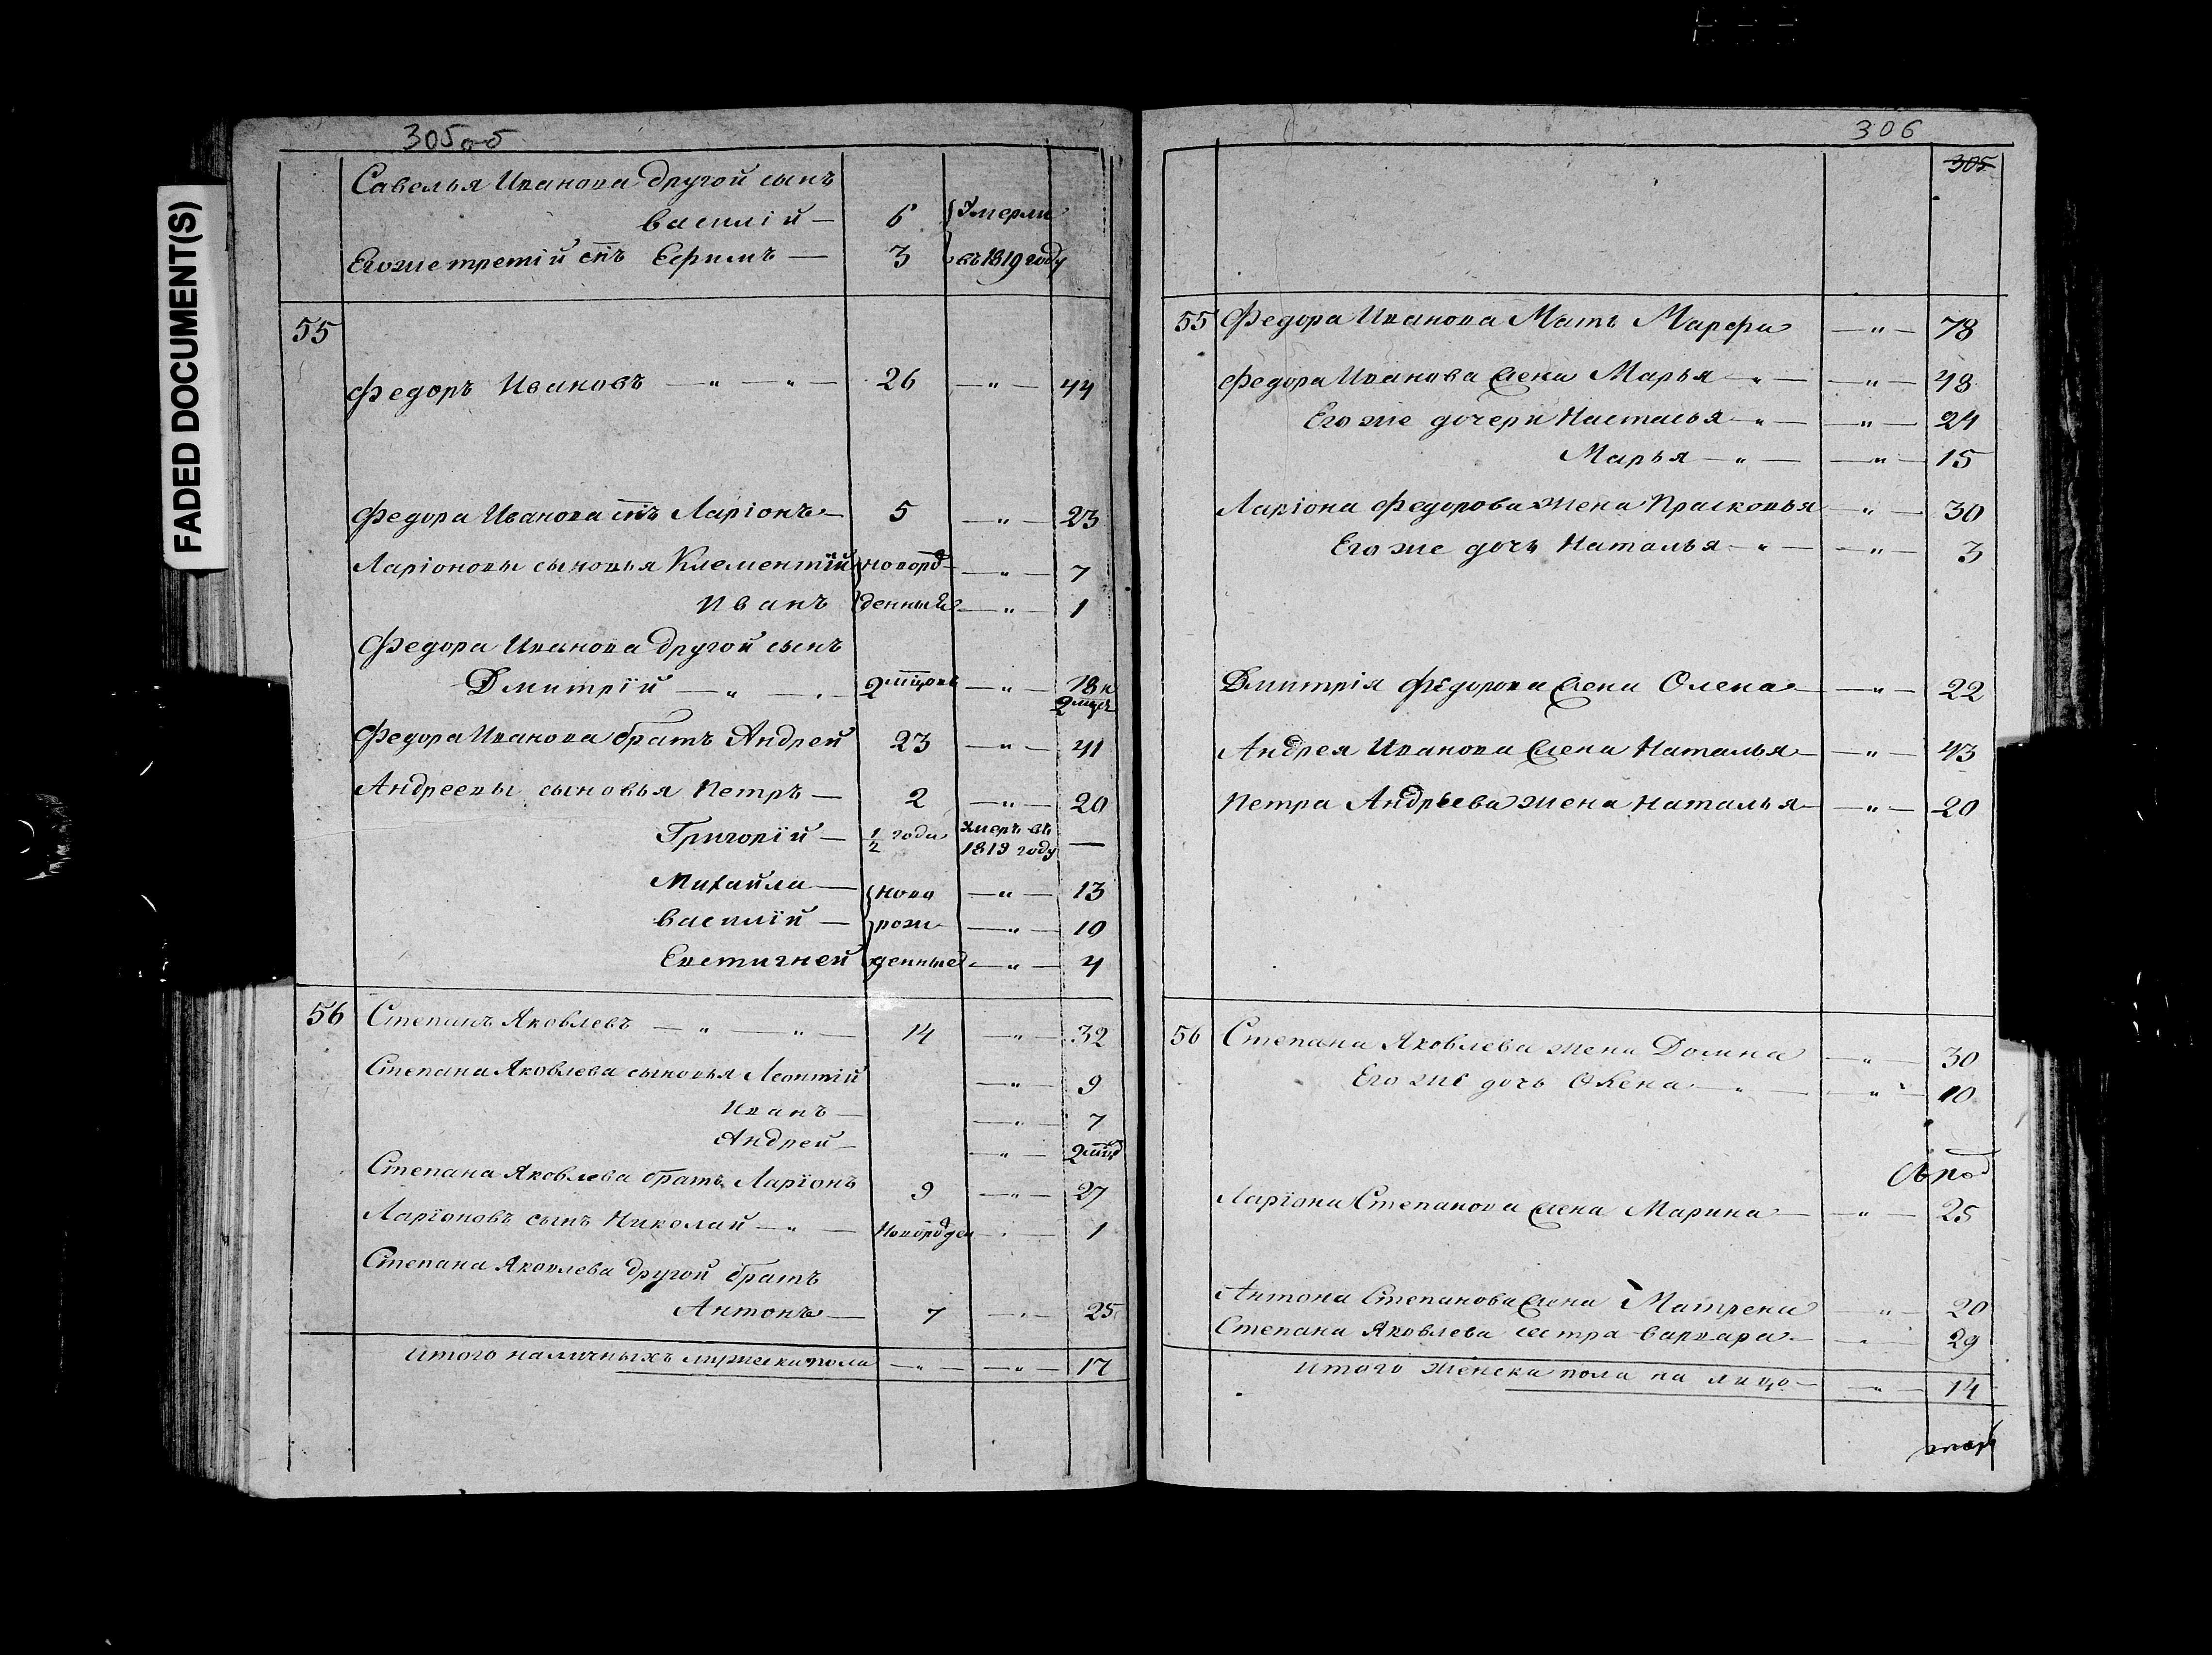 FADED DOCUMENT(S)
305 об
Савелья Иванова другой сынъ
Василій — 6 Умерли
Его же третій снъ Ефимъ — 3 въ 1819 году
55
Федоръ Ивановъ — " — " — 26 — " — 44
Федора Иванова снъ Ларіонъ — 5 — " — 23
Ларіоновы сыновья Клементій новорж — " — 7
Иванъ денные — " — 1
Федора Иванова другой сынъ
Дмитрій — " — 2 мцовъ — " — 18 и 2 мцъ
Федора Иванова братъ Андрей 23 — " — 41
Андреевы сыновья Петръ — 2 — " — 20
Григорій — 1/2 года умеръ въ 1819 году —
Михайла — ново — " — 13
Василій — рож — " — 10
Евстигней денные — " — 4
56 Степанъ Яковлевъ — " — " — 14 — " — 32
Степана Яковлева сыновья Леонтій — " — 9
Иванъ — — " — 7
Андрей — — " — 2 мцъ
Степана Яковлева братъ Ларіонъ 9 — " — 27
Ларіоновъ сынъ Николай — " — новорожден — " — 1
Степана Яковлева другой братъ
Антонъ — 7 — " — 25
Итого наличныхъ мужеска пола — " — — " — 17
306
305
55 Федора Иванова Мать Марфа — " — 78
Федора Иванова жена Марья — " — — " — 48
Его же дочери Насталья — " — — " — 24
Марья — " — — " — 15
Ларіона Федорова жена Прасковья — " — 30
Его же дочь Наталья — " — — " — 3
Дмитрія Федорова жена Олена — — " — 22
Андрея Иванова жена Наталья — — " — 43
Петра Андреева жена Наталья — — " — 20
56 Степана Яковлева жена Домна — " — 30
Его же дочь Олена — " — — " — 10
Ларіона Степанова жена Марина — — " — 25
Антона Степанова жена Матрена — " — 20
Степана Яковлева сестра Варвара — — " — 29
Итого женска пола на лицо — — " — 14